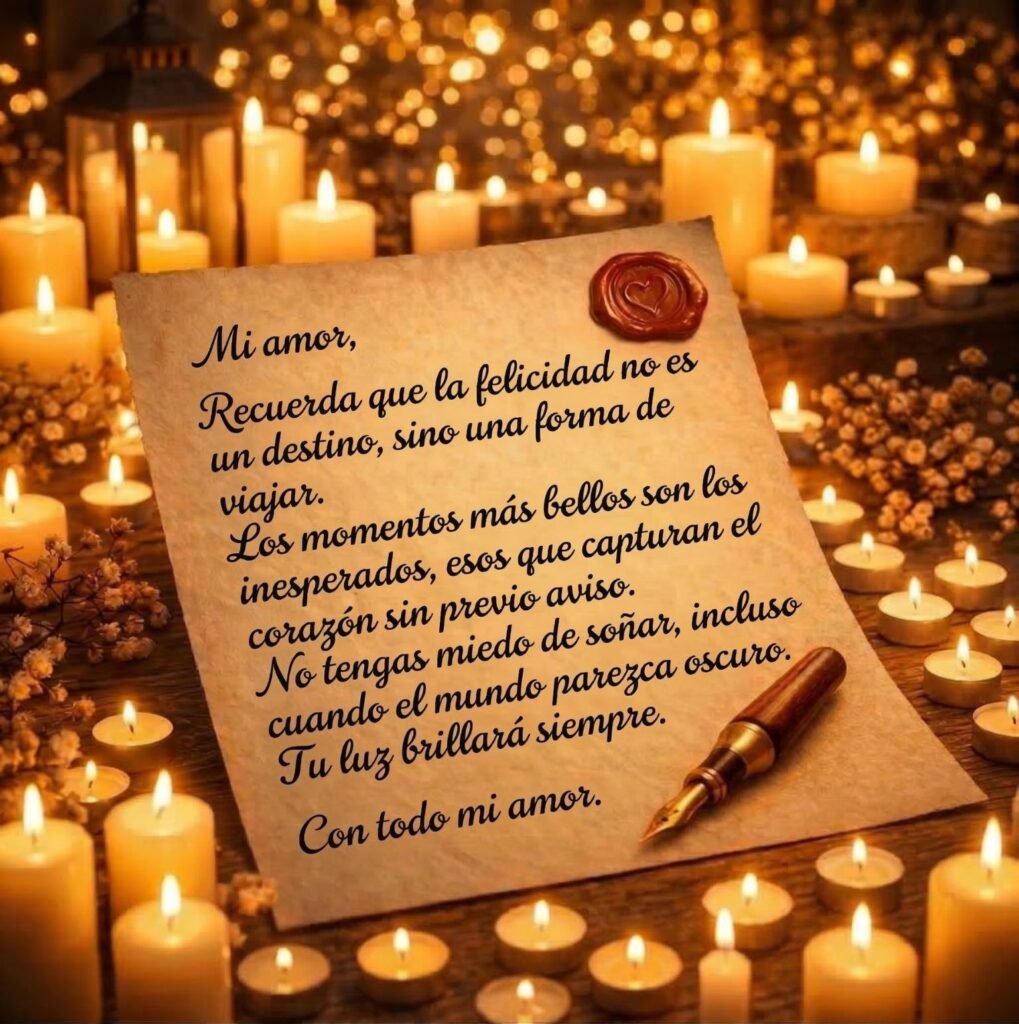 Mi amor,
Recuerda que la felicidad no es
un destino, sino una forma de
viajar.
Los momentos más bellos son los
inesperados, esos que capturan el
corazón sin previo aviso.
No tengas miedo de soñar, incluso
cuando el mundo parezca oscuro.
Tu luz brillará siempre.
Con todo mi amor.